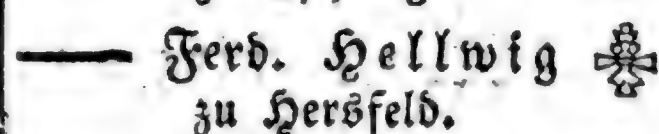 Ferd. Hellwig
zu Hersfeld.